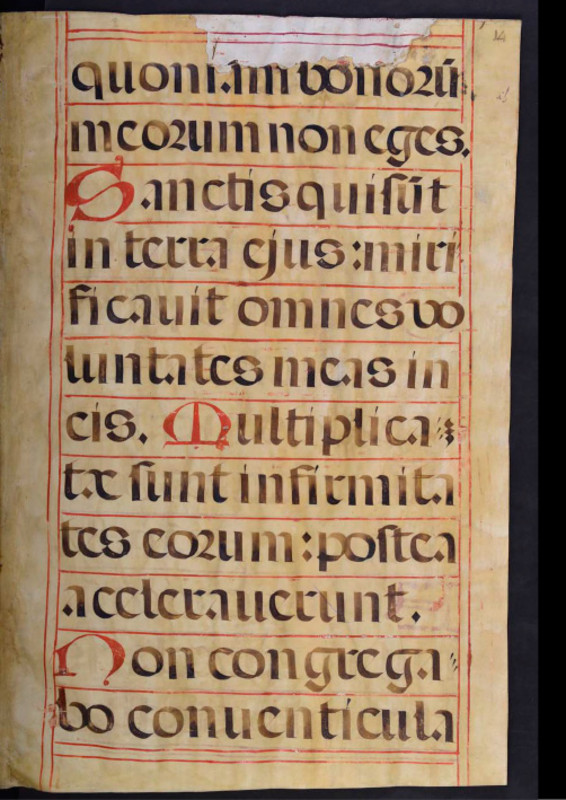 quoniam bonorū
meorum non eges.
Sanctis qui sūt
in terra ejus: miri
ficauit omnes vo
luntates meas in
eis. Multiplica
tæ sunt infirmita
tes eorum: postea
accelerauerunt.
Non congrega
bo conuenticula